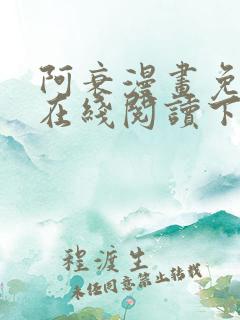 阿衰漫畫免
在綫閱讀下
程渡生
未经同意禁止转载